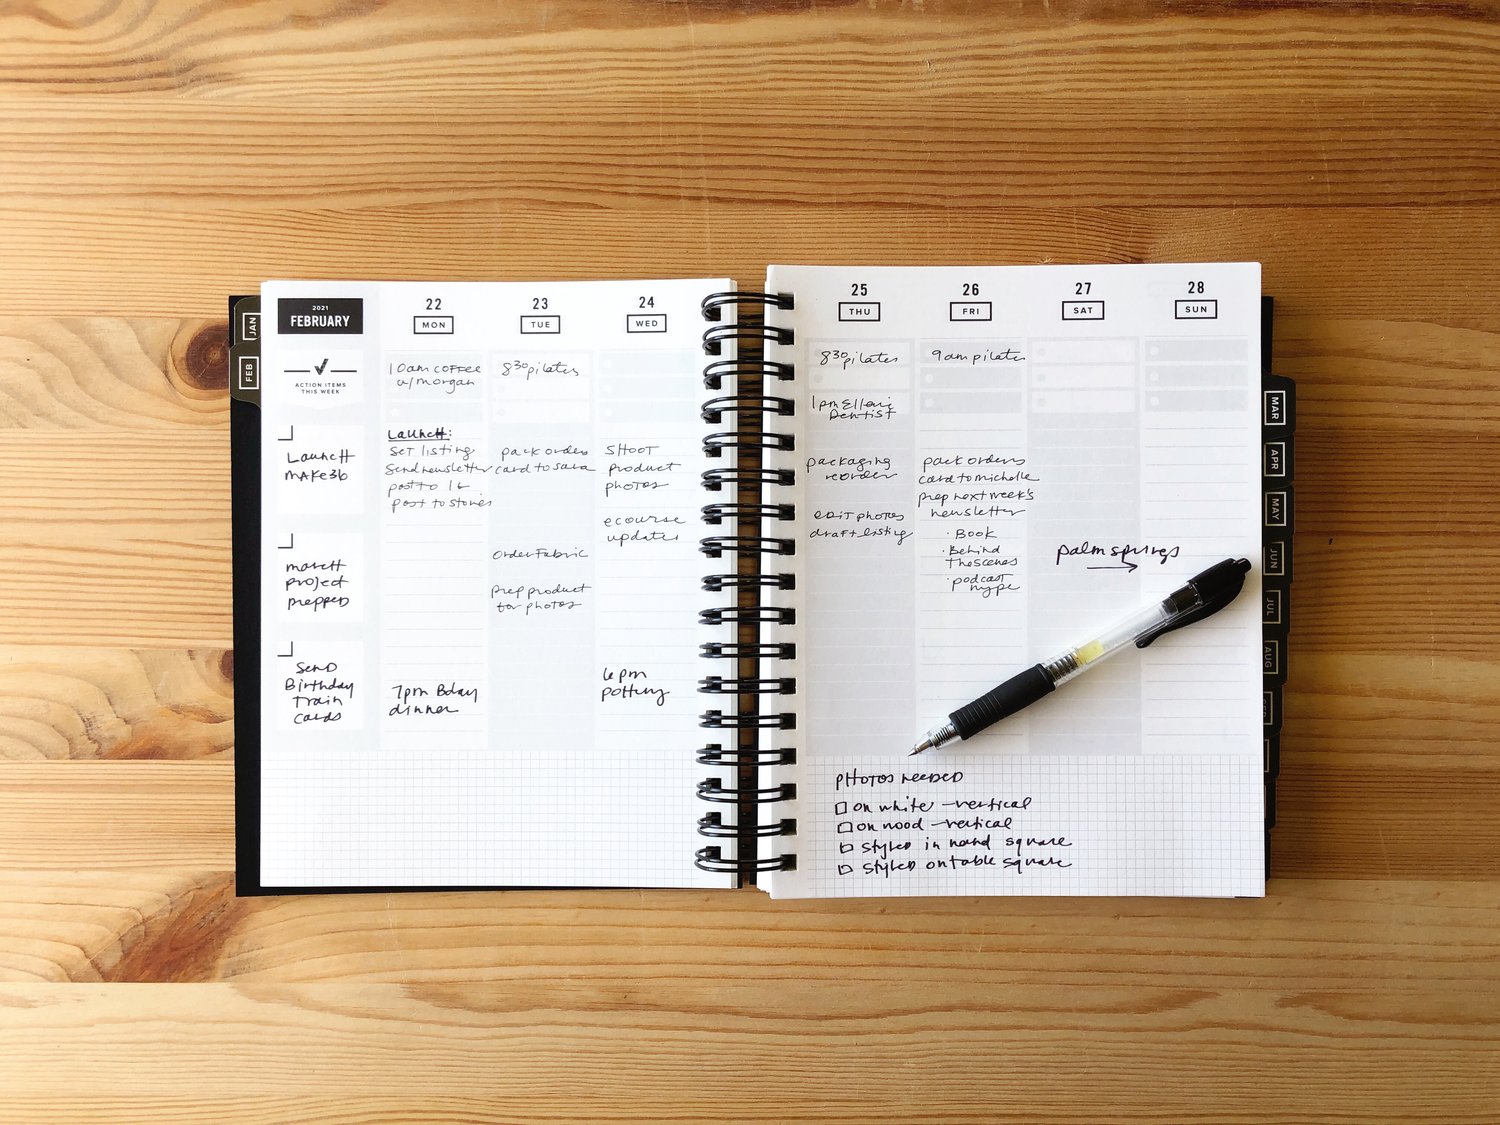 JAN
FEB
2021
FEBRUARY
ACTION ITEMS
THIS WEEK
Launch
make36
march
project
prepped
Send
Birthday
Train
cards
22
MON
10am coffee
w/morgan
Launch:
set listing
Send newsletter
post to IG
post to stories
7pm Bday
dinner
23
TUE
8:30 pilates
pack orders
card to sara
order Fabric
prep product
for photos
24
WED
SHOOT
product
photos
ecourse
updates
6pm
pottery
25
THU
8:30 pilates
1pm
Dentist
packaging
reorder
edit photos
draft listing
26
FRI
9am pilates
pack orders
card to michelle
prep next week's
newsletter
· Book
· Behind
the scenes
· podcast
hype
27
SAT
palm springs
28
SUN
PHOTOS needed
on white - vertical
on wood - vertical
styled in hand square
styled on table square
MAR
APR
MAY
JUN
JUL
AUG
SEP